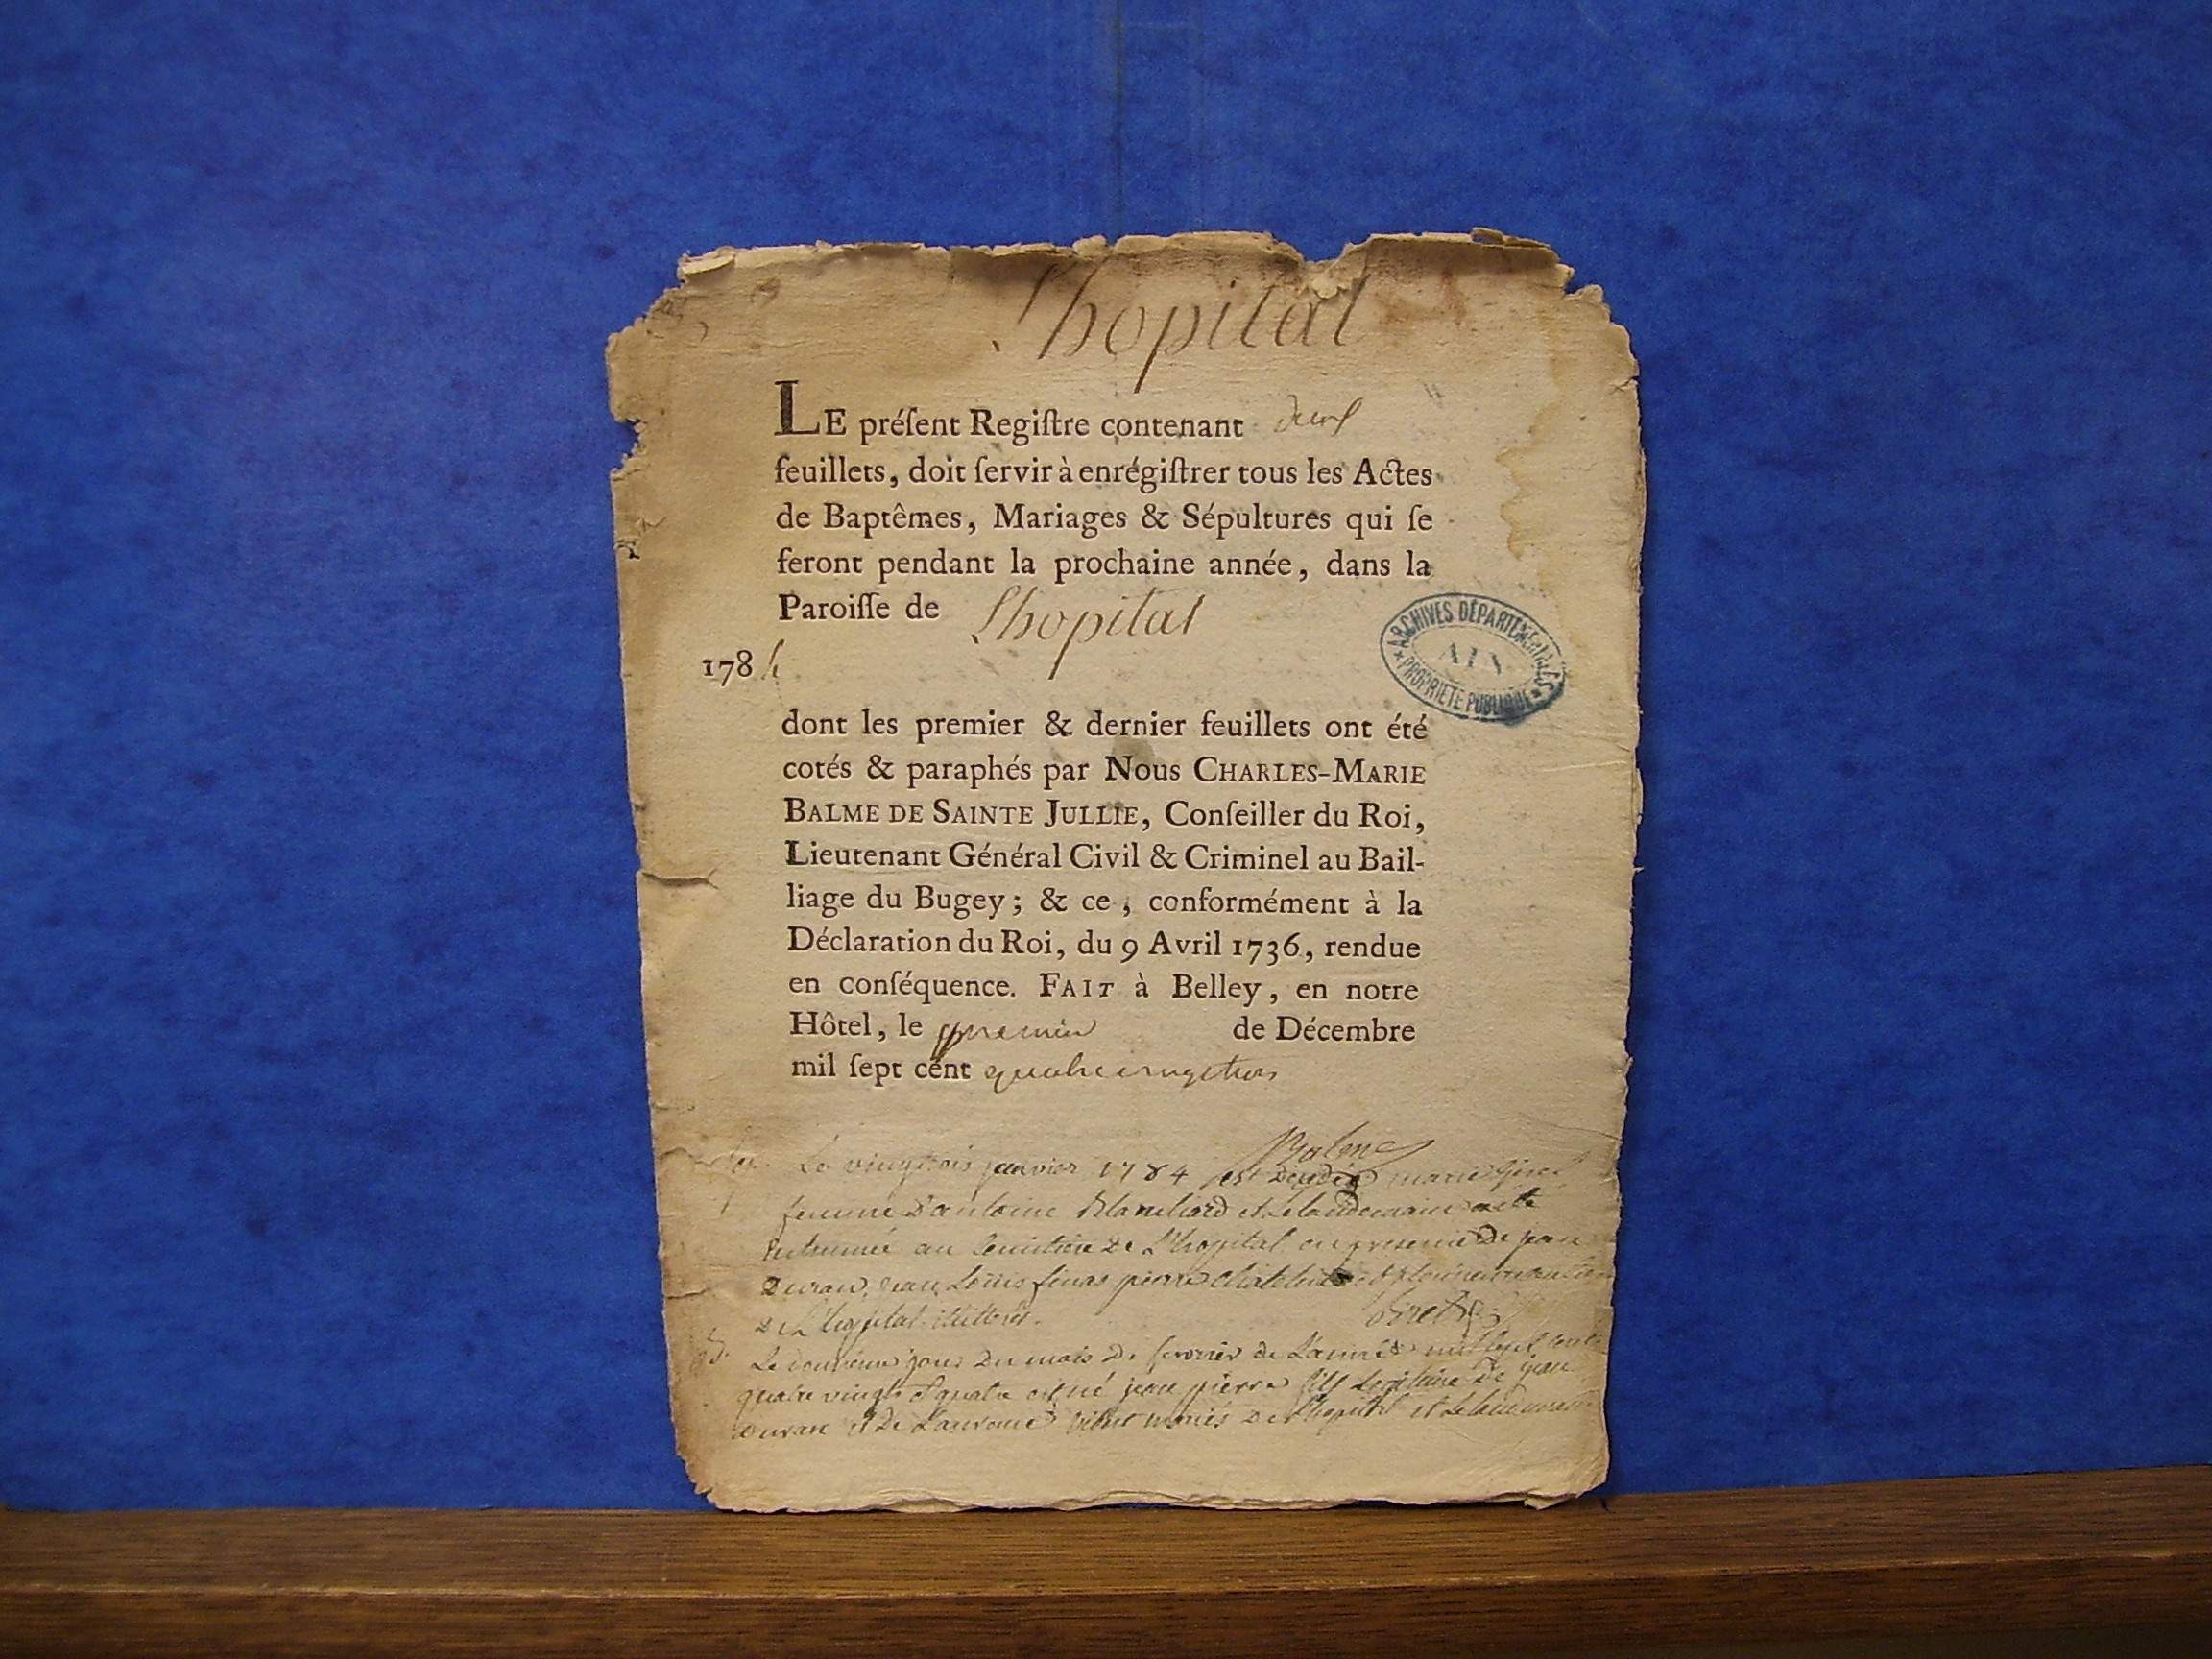 L'hopital
LE préſent Regiſtre contenant deux
feuillets, doit ſervir à enrégiſtrer tous les Actes
de Baptêmes, Mariages & Sépultures qui ſe
feront pendant la prochaine année, dans la
Paroiſſe de L'hopital
1784
ARCHIVES DÉPARTEMENTALES
AIN
PROPRIÉTÉ PUBLIQUE
dont les premier & dernier feuillets ont été
cotés & paraphés par Nous CHARLES-MARIE
BALME DE SAINTE JULLIE, Conſeiller du Roi,
Lieutenant Général Civil & Criminel au Bail-
liage du Bugey; & ce, conformément à la
Déclaration du Roi, du 9 Avril 1736, rendue
en conſéquence. FAIT à Belley, en notre
Hôtel, le premier de Décembre
mil ſept cent quatrevingttrois
Balme
Le vingttrois janvier 1784 est décédée marie
femme d'antoine et le landemain a été
inhumée au cemitiere de L'hopital en presence de jean
Duran, jean Louis pierre
de L'hopital illitterés.
Le jour du mois de fevrier de L'année mil sept cent
quatre vingts et quatre est né jean pierre fils Legitime de jean
Duran et de mariés de L'hopital et le landemain